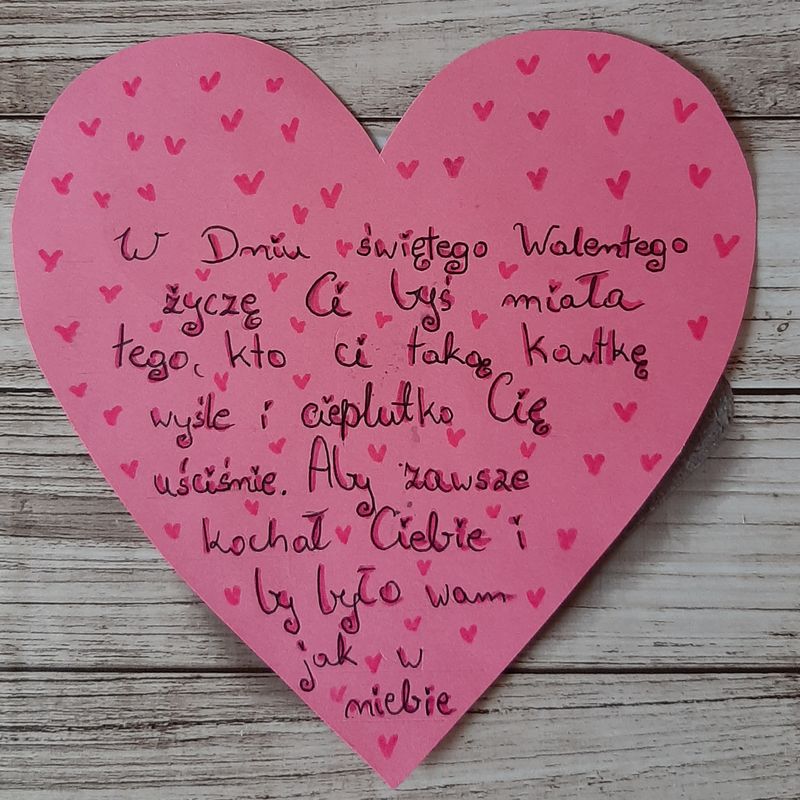 W Dniu świętego Walentego
życzę Ci byś miała
tego, kto ci taką kartkę
wyśle i cieplutko Cię
uściśnie. Aby zawsze
kochał Ciebie i
by było wam
jak w
niebie